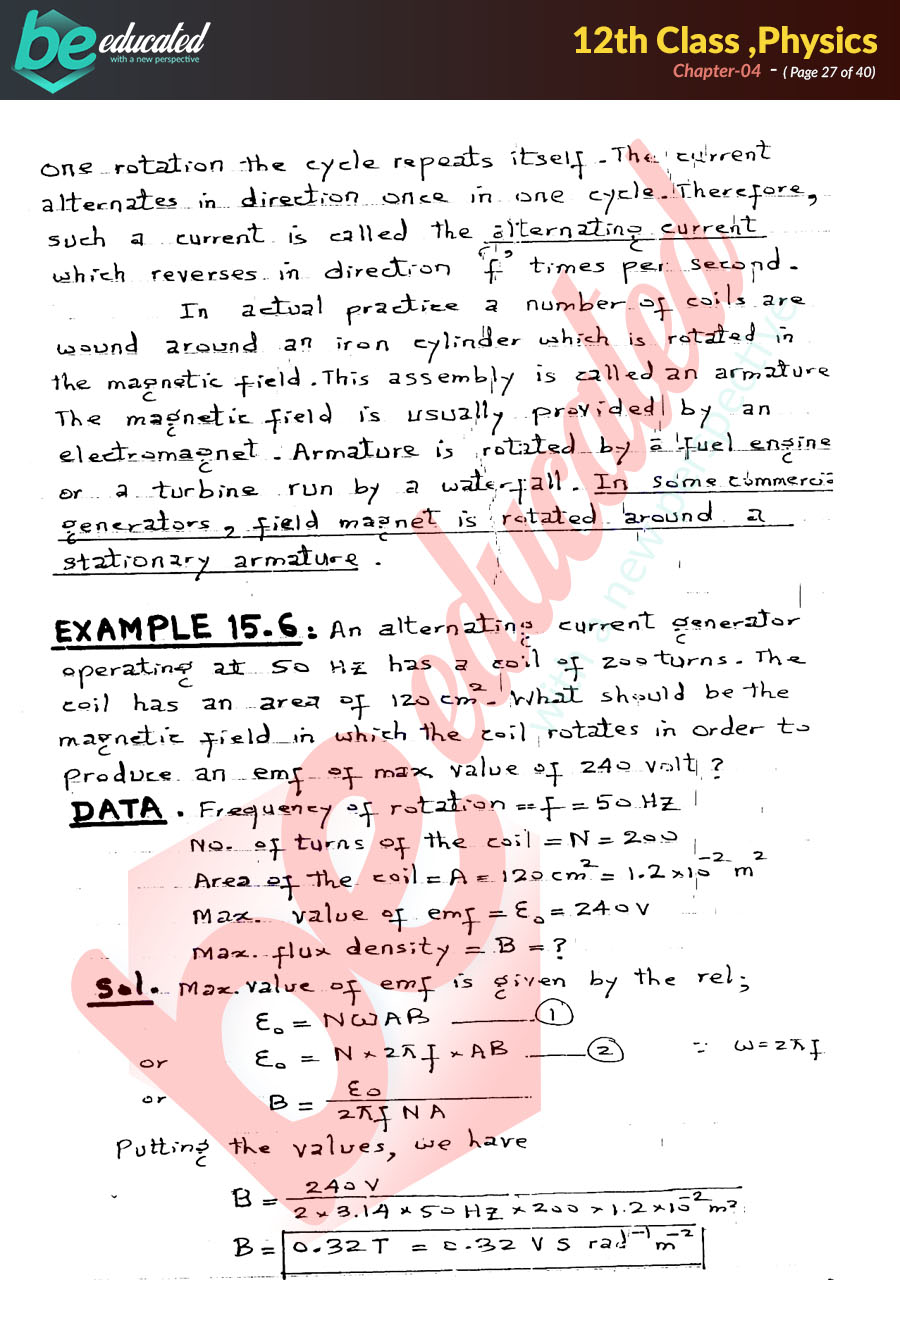 be educated
with a new perspective
12th Class ,Physics
Chapter-04 - ( Page 27 of 40)
one rotation the cycle repeats itself. The current
alternates in direction once in one cycle. Therefore,
such a current is called the alternating current
which reverses in direction 'f' times per second.
In actual practice a number of coils are
wound around an iron cylinder which is rotated in
the magnetic field. This assembly is called an armature
The magnetic field is usually provided by an
electromagnet. Armature is rotated by a fuel engine
or a turbine run by a waterfall. In some commerci
generators, field magnet is rotated around a
stationary armature.
EXAMPLE 15.6: An alternating current generator
operating at 50 Hz has a coil of 200 turns. The
coil has an area of 120 cm². What should be the
magnetic field in which the coil rotates in order to
produce an emf of max. value of 240 volt ?
DATA. Frequency of rotation = f = 50 Hz
No. of turns of the coil = N = 200
Area of the coil = A = 120 cm² = 1.2 × 10⁻² m²
Max. value of emf = ε₀ = 240 V
Max. flux density = B = ?
Sol. Max. value of emf is given by the rel;
ε₀ = NωAB ——— ①
or ε₀ = N × 2πf × AB ——— ② ∵ ω = 2πf
or B = ε₀ / 2πf NA
Putting the values, we have
B = 240 V / 2 × 3.14 × 50 Hz × 200 × 1.2 × 10⁻² m²
B = 0.32 T = 0.32 V s rad⁻¹ m⁻²
be educated
with a new perspective